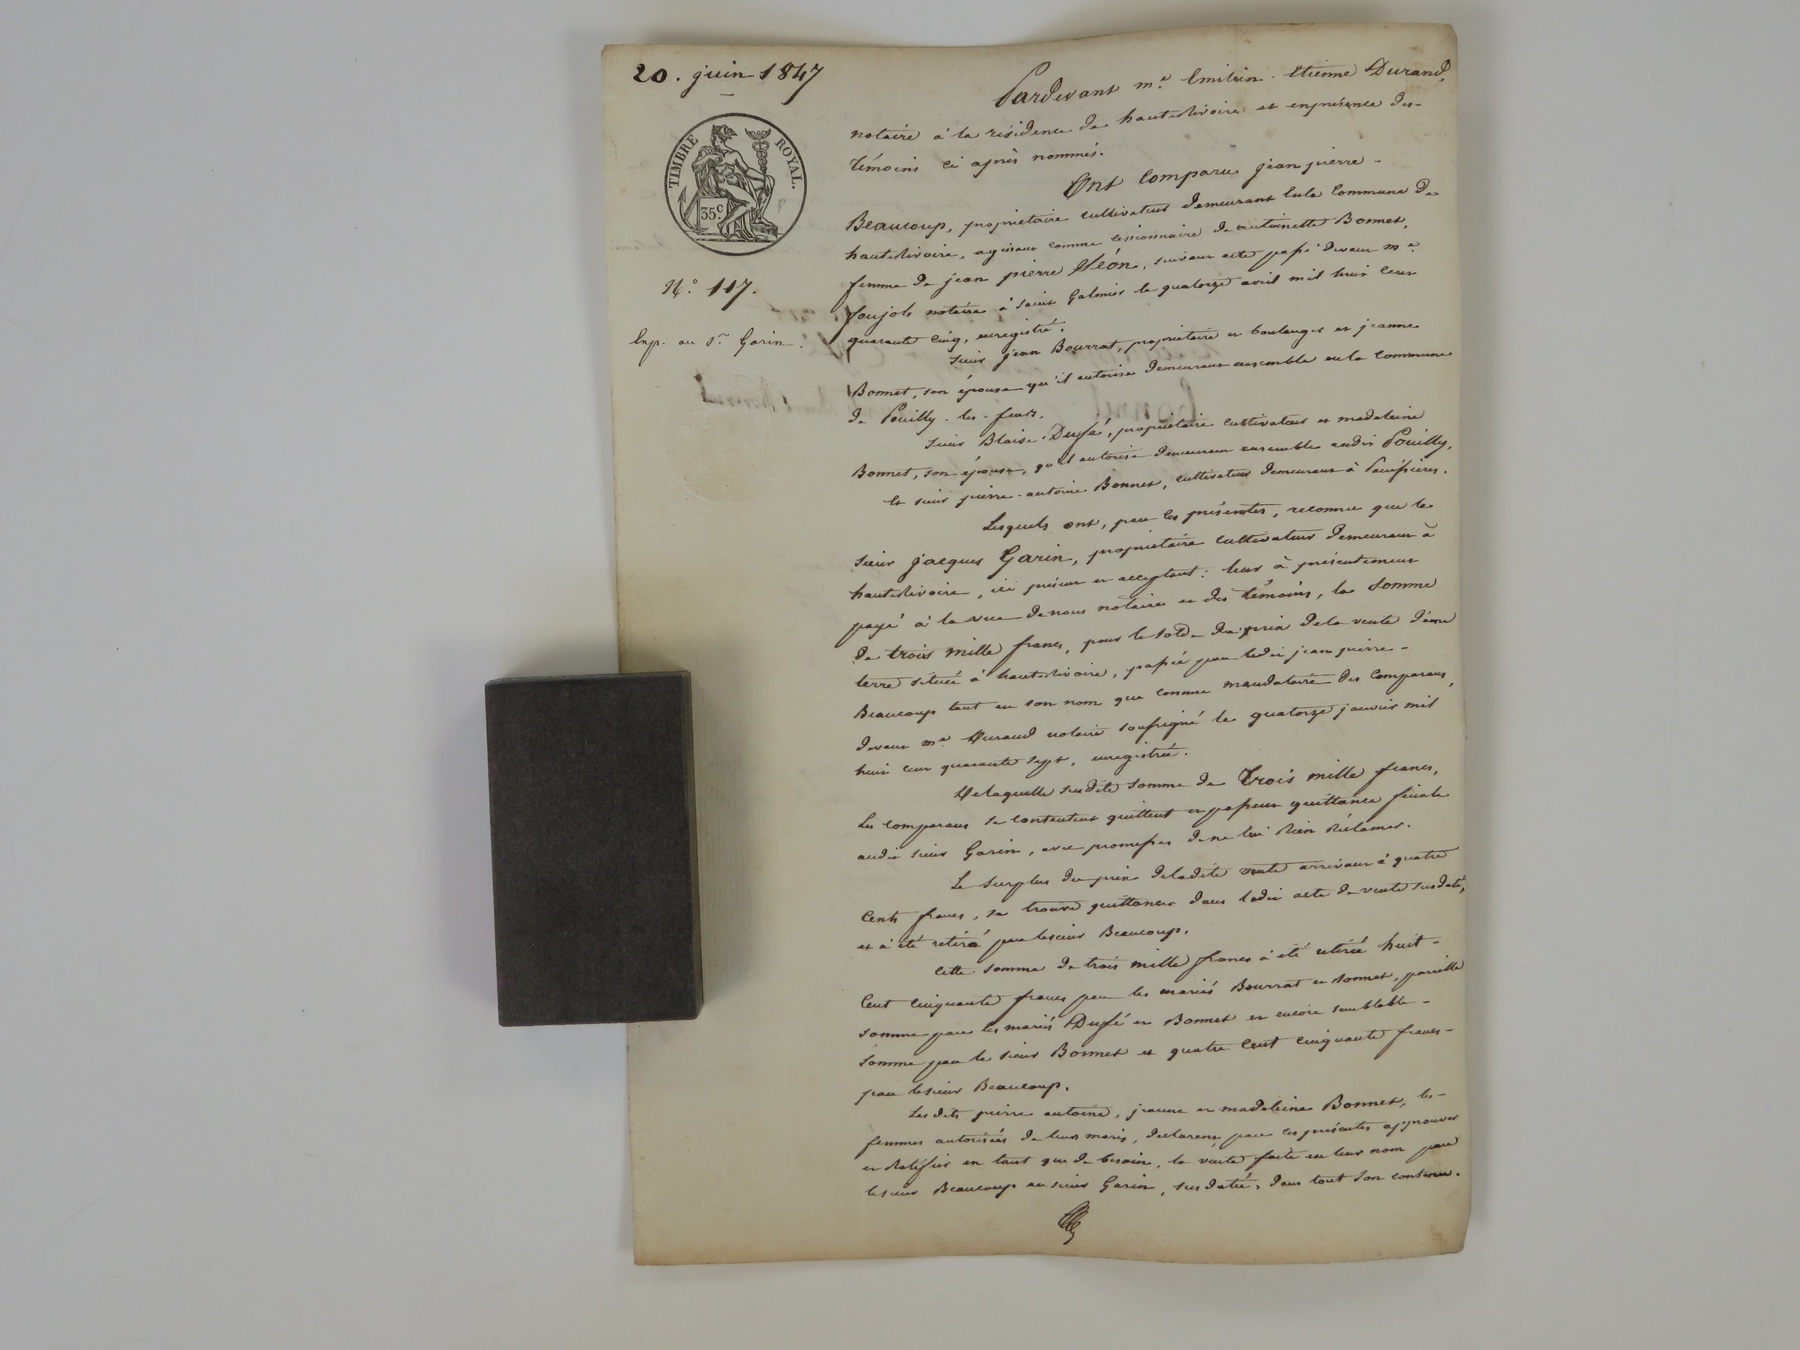 20. juin 1847
TIMBRE ROYAL.
35c
N.° 117.
Exp. au Sr Garin.
Pardevant me Emilien Etienne Durand,
notaire à la résidence de hauterivoire et en présence des
témoins ci après nommés.
Ont Comparu jean pierre
Beaucoup, propriétaire cultivateur demeurant en la Commune de
hauterivoire, agissant comme cessionnaire de antoinette Bonnet,
femme de jean pierre Néon, suivant acte passé devant me
notaire à Saint Galmier le quatorze avril mil huit cent
quarante cinq, enregistré.
Sieur jean Bourrat, propriétaire et boulanger et jeanne
Bonnet, son épouse qu'il autorise demeurant ensemble en la commune
de Pouilly-les-feurs.
Sieur Blaise Dufé, propriétaire cultivateur et madeleine
Bonnet, son épouse, qu'il autorise demeurant ensemble audit Pouilly,
Et sieur pierre-antoine Bonnet, cultivateur demeurant à
Lesquels ont, par ces présentes, reconnu que le
sieur jacques Garin, propriétaire cultivateur demeurant à
hauterivoire, ici présent et acceptant: leur à présentement
payé à la vue de nous notaire et des témoins, la somme
de trois mille francs, pour le solde du prix de la vente d'une
terre située à hauterivoire, passée par ledit jean pierre
Beaucoup tant en son nom que comme mandataire des comparans,
devant me Durand notaire soussigné le quatorze janvier mil
huit cent quarante sept, enregistrée.
Delaquelle susdite somme de Trois mille francs,
les comparans se contentent quittent et passent quittance finale
audit sieur Garin, avec promesses de ne lui Rien Réclamer.
Le surplus du prix deladite vente arrivant à quatre
Cents francs, se trouve quittancé dans ledit acte de vente susdaté,
et à été retiré par lesieur Beaucoup.
Cette somme de trois mille francs à été retirée huit
Cent cinquante francs par les mariés Bourrat et Bonnet, pareille
somme par les mariés Dufé et Bonnet et encore semblable
somme par le sieur Bonnet et quatre Cent cinquante francs
par lesieur Beaucoup.
Lesdits pierre antoine, jeanne et madeleine Bonnet, les
femmes autorisées de leurs maris, déclarent par ces présentes approuver
et Ratifier en tant que de besoin, la vente faite en leur nom par
lesieur Beaucoup au sieur Garin, susdatée, dans tout son contenu.